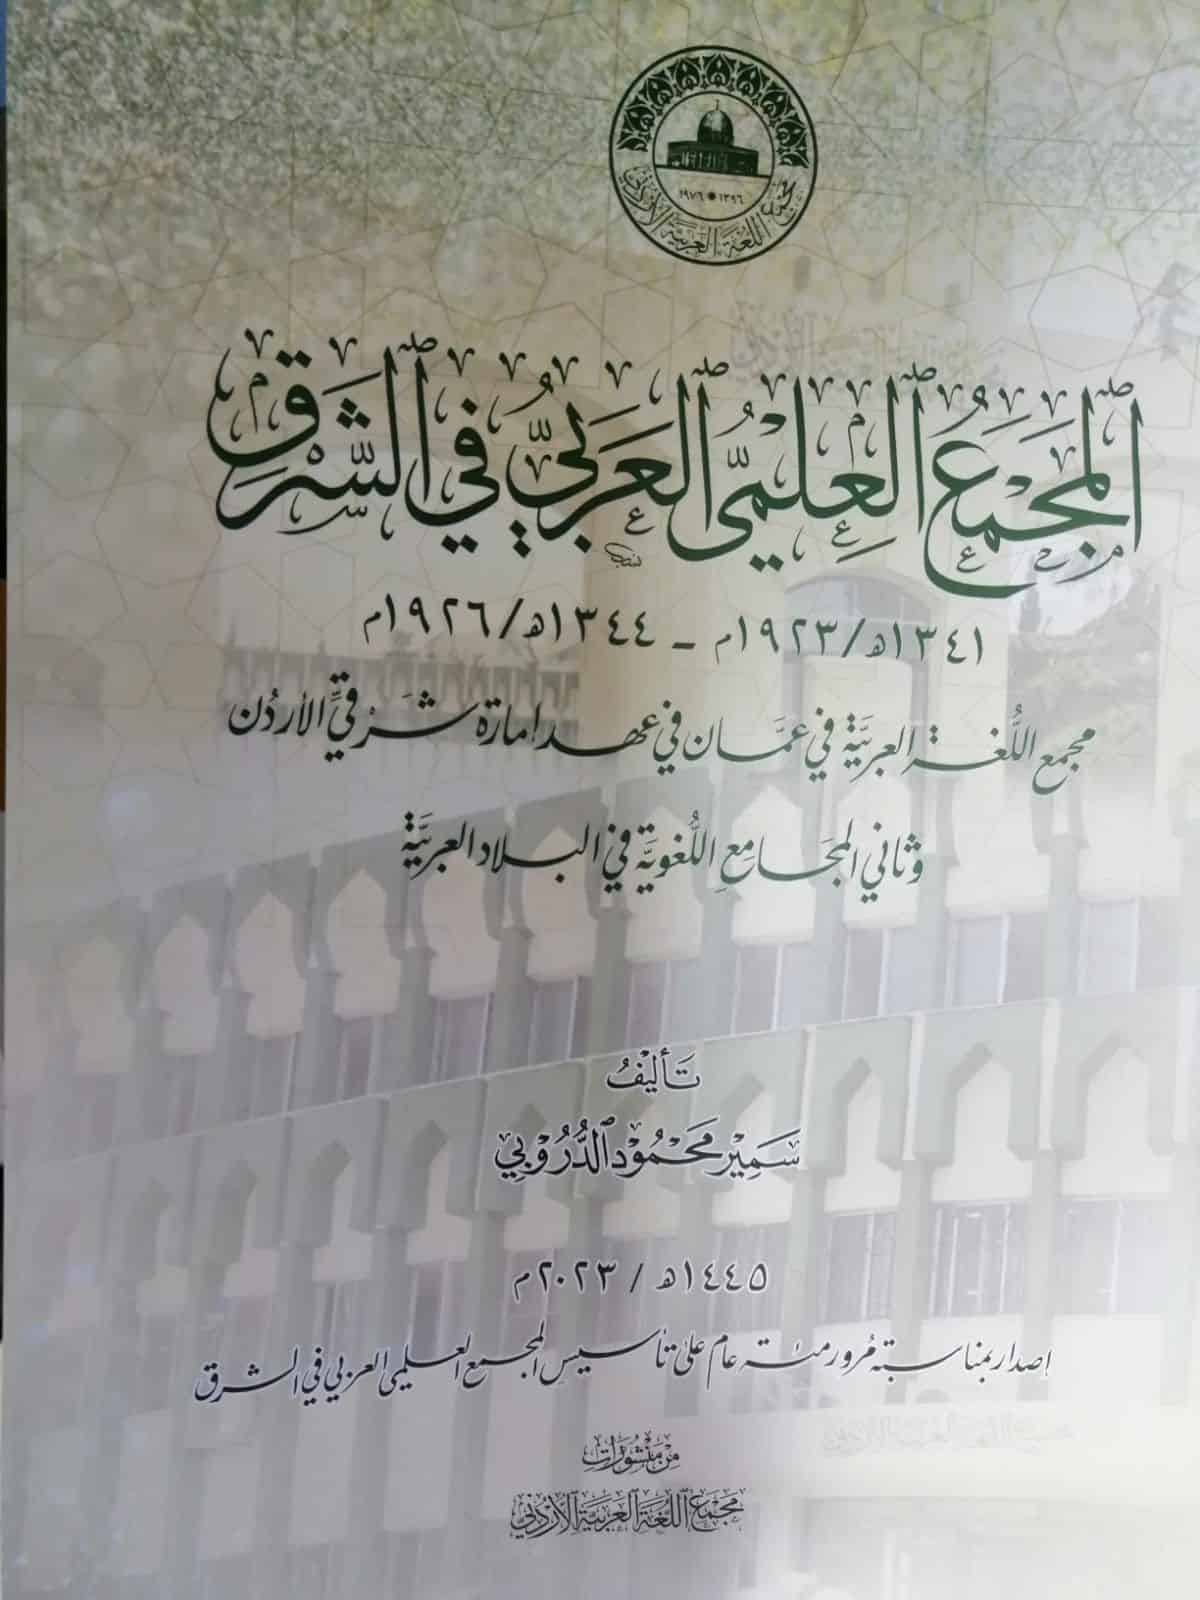 مجمع اللغة العربية الأردني
١٣٩٦ * ١٩٧٦
المَجْمَعُ العِلْمِيُّ العَرَبِيُّ في الشَّرْقِ
١٣٤١هـ/١٩٢٣م - ١٣٤٤هـ/١٩٢٦م
مجمع اللُّغة العربيَّة في عمَّان في عهد إمارة شرقيِّ الأردُن
وثاني المجَامِع اللُّغويَّة في البلاد العربيَّة
تَأليْفُ
سَمِيْر مَحْمُوْد الدُّرُوْبي
١٤٤٥هـ / ٢٠٢٣م
إصدار بمناسبة مُرور مئة عام على تأسيس المجمع العلمي العربي في الشرق
مِنْ مَنْشُوْرَاتِ
مَجْمَعِ اللُّغَةِ العَرَبيَّةِ الأُرْدُنيِّ